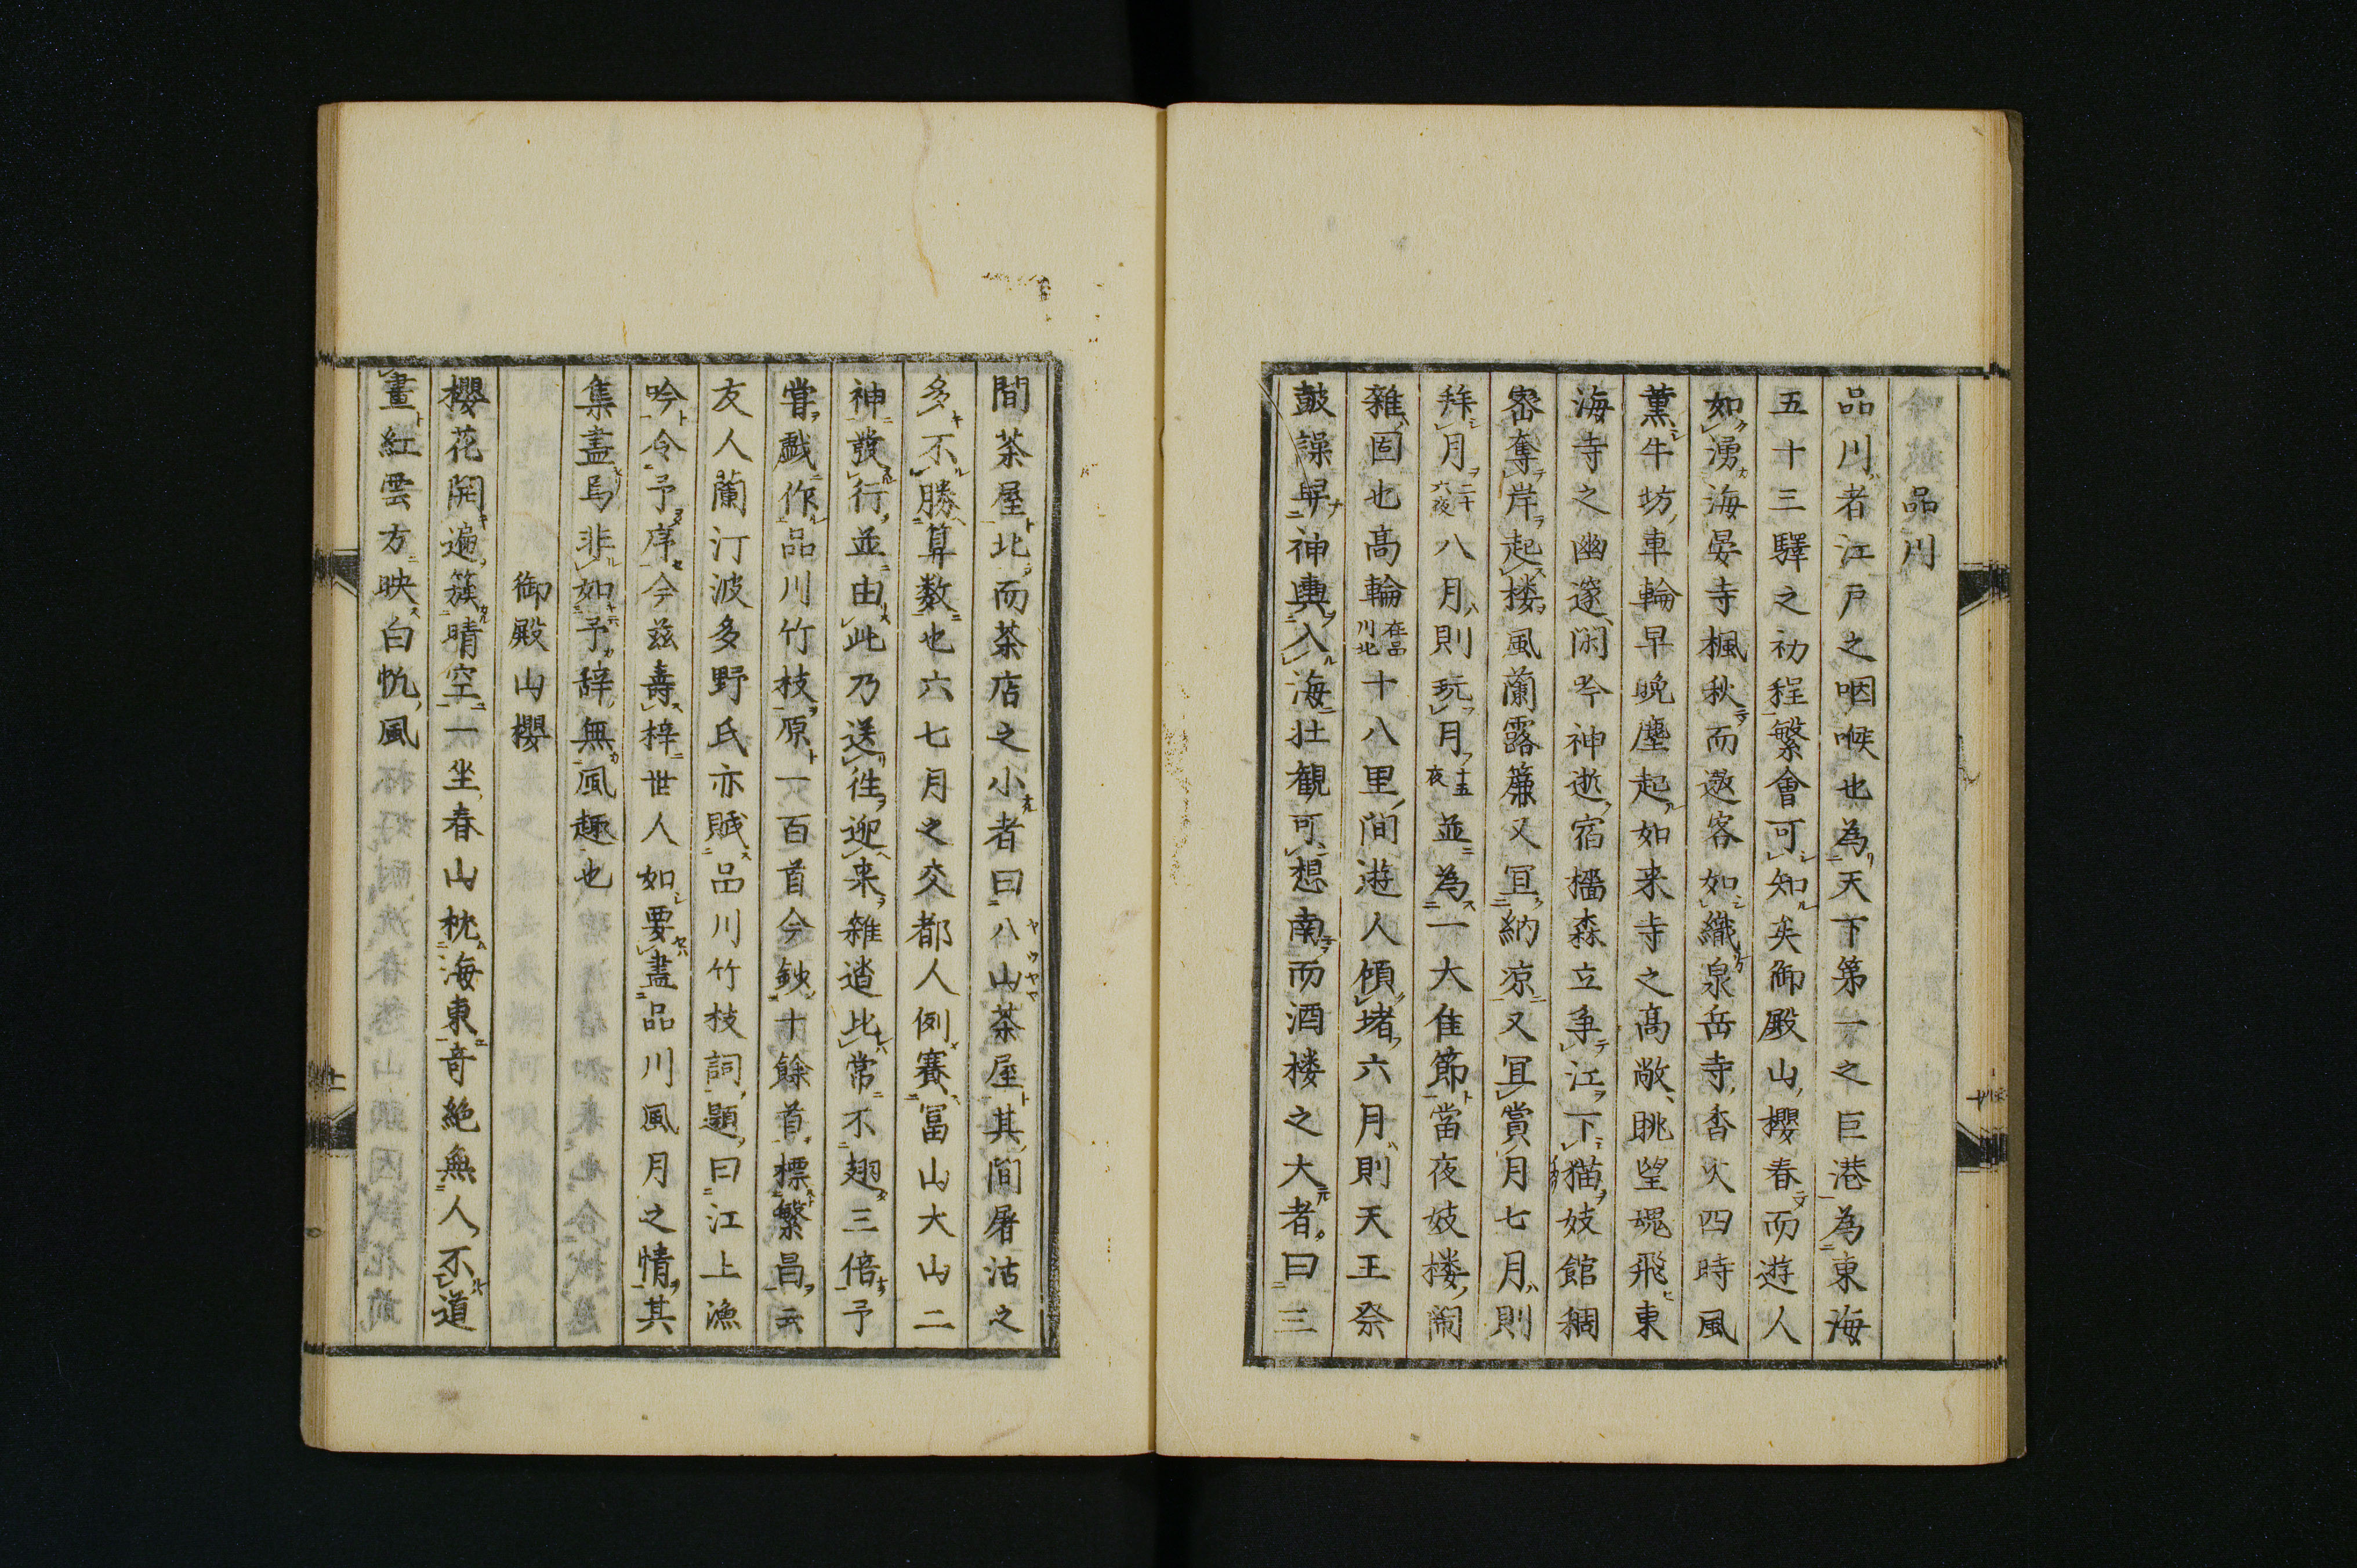 品川
品川者江戸之咽喉也為天下第一之巨港為東海
五十三驛之初程繁會可知矣御殿山櫻春而遊人
如湧海晏寺楓秋而邀客如織泉岳寺香火四時風
薫牛坊車輪早晩塵起如来寺之高敞眺望魂飛東
海寺之幽邃閑吟神逝宿檣森立争江下猫妓館稠
密奪岸起楼風蘭露簾又冝納凉又冝賞月七月則
拜月二十六夜八月則玩月十五夜並為一大佳節當夜妓楼閙
雜固也高輪在品川北十八里間遊人傾堵六月則天王祭
鼓譟舁神輿入海壮観可想南而酒楼之大者曰三
間茶屋北而茶店之小者曰八山茶屋其間屠沽之
多不勝算数也六七月之交都人例賽冨山大山二
神發行並由此乃送徃迎来雜遝比常不翅三倍予
嘗戯作品川竹枝原一百首今鈔十餘首標繁昌云
友人蘭汀波多野氏亦賦品川竹枝詞題曰江上漁
吟令予序今兹壽梓世人如要盡品川風月之情其
集盡焉非如予辞無風趣也
御殿山櫻
櫻花開遍簇晴空一坐春山枕海東竒絶無人不道
畫紅雲方映白帆風